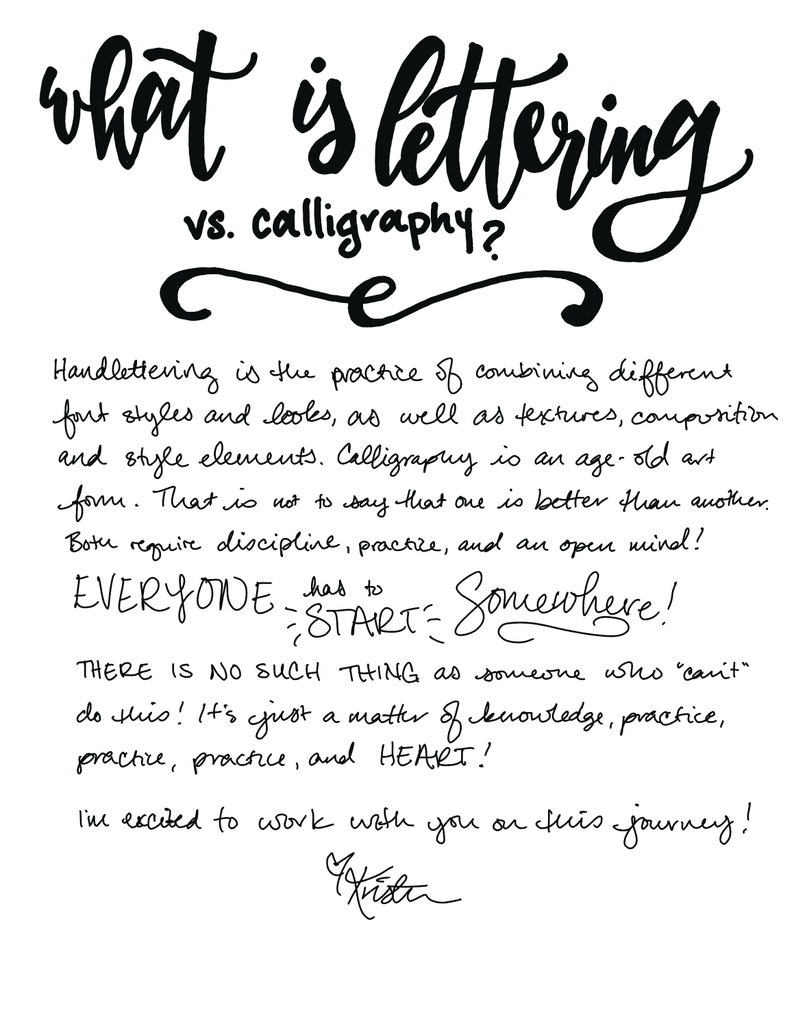 what is lettering
vs. calligraphy?
Handlettering is the practice of combining different
font styles and looks, as well as textures, composition
and style elements. Calligraphy is an age-old art
form. That is not to say that one is better than another.
Both require discipline, practice, and an open mind!
EVERYONE has to START Somewhere!
THERE IS NO SUCH THING as someone who "can't"
do this! It's just a matter of knowledge, practice,
practice, practice, and HEART!
I'm excited to work with you on this journey!
Kristen